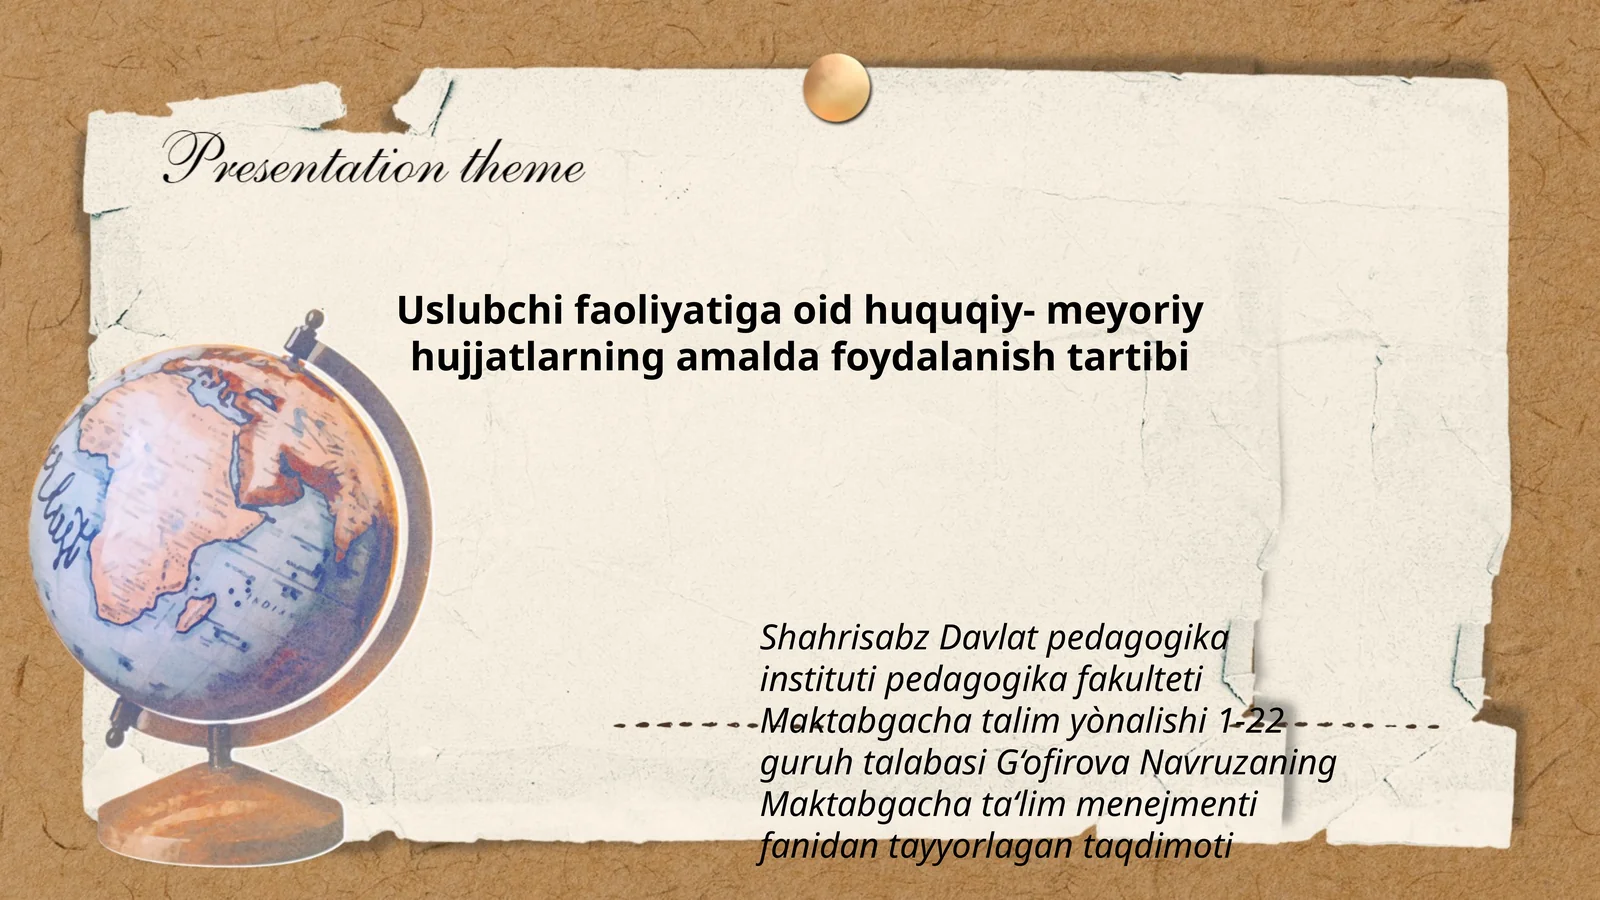 Presentation theme
Uslubchi faoliyatiga oid huquqiy- meyoriy
hujjatlarning amalda foydalanish tartibi
Shahrisabz Davlat pedagogika
instituti pedagogika fakulteti
Maktabgacha talim yònalishi 1-22
guruh talabasi G‘ofirova Navruzaning
Maktabgacha ta‘lim menejmenti
fanidan tayyorlagan taqdimoti